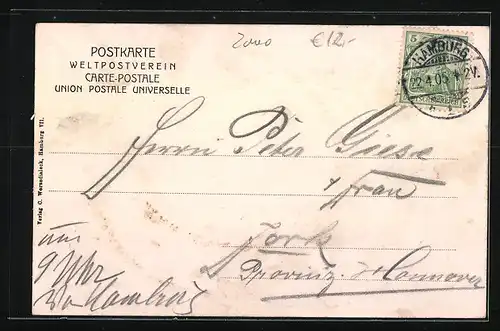 2000 €12,-
POSTKARTE
WELTPOSTVEREIN
CARTE-POSTALE
UNION POSTALE UNIVERSELLE
5
HAMBURG
2.4.05
Herrn Peter Giese
& Frau
Jork
Provinz Hannover
9 Uhr
Hamburg
Verlag C. Worzedialeck, Hamburg VII.